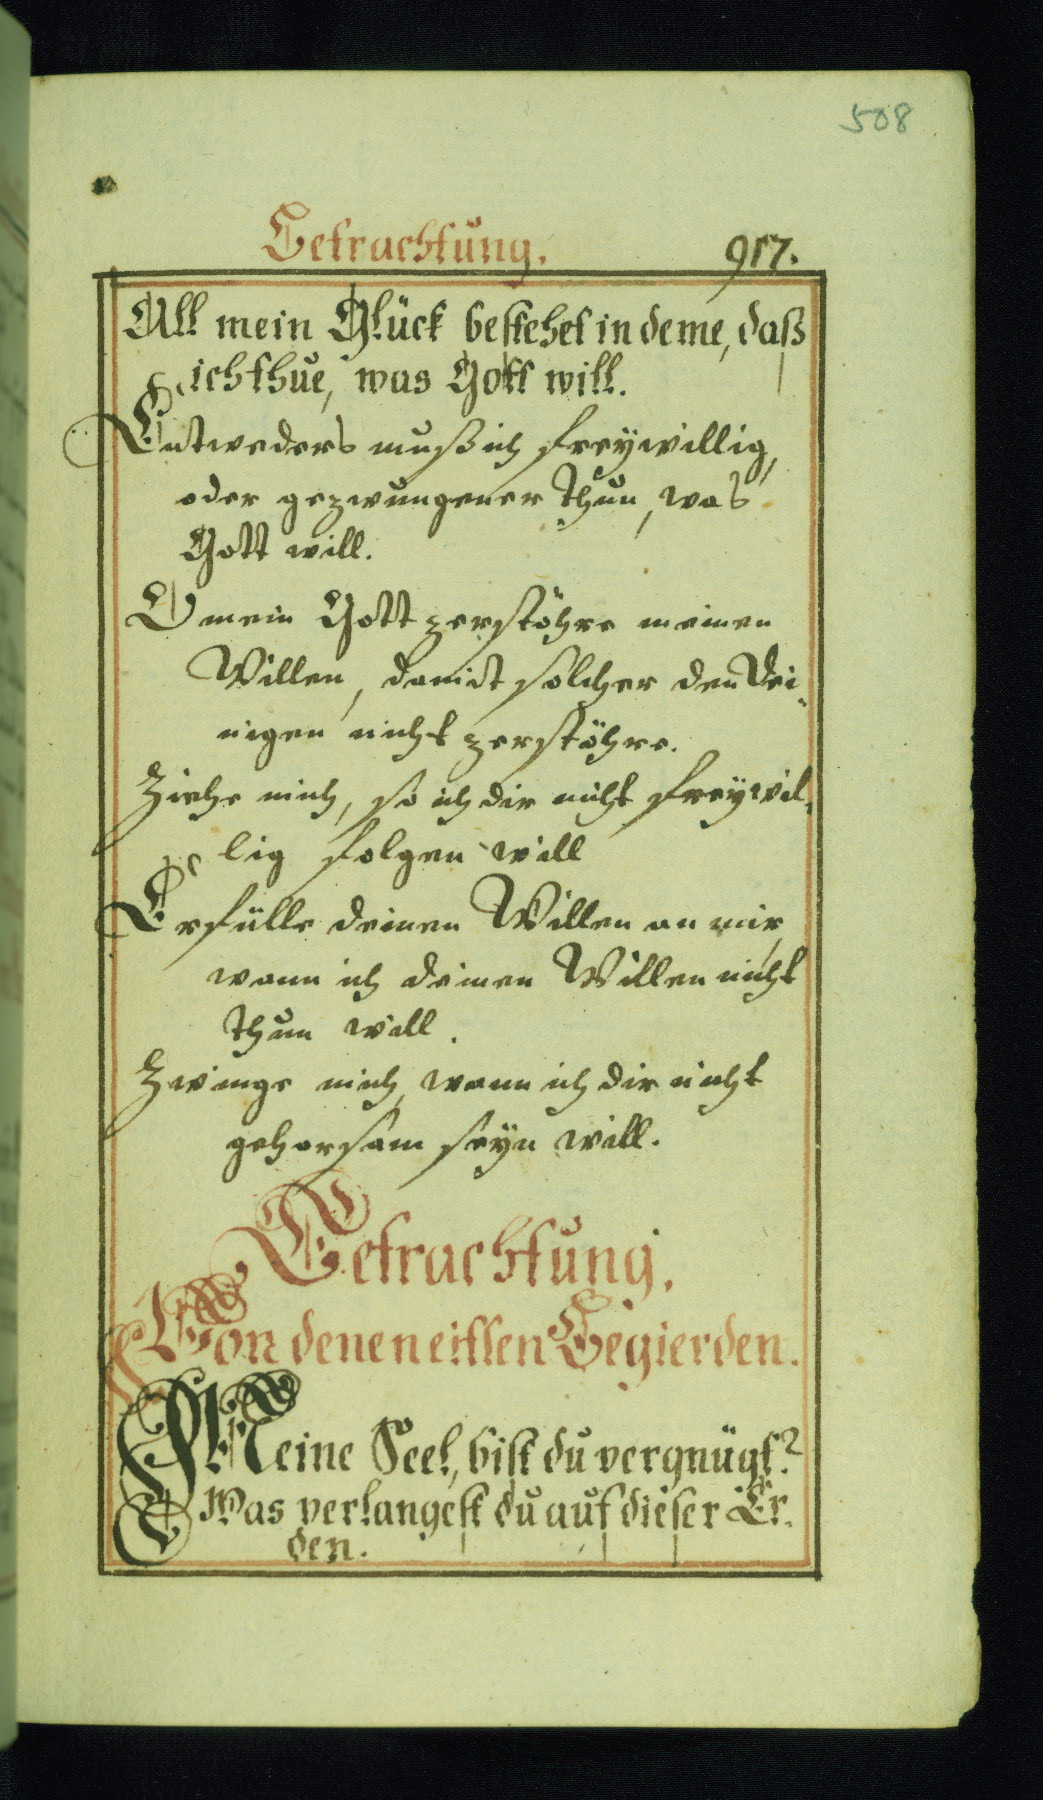 508
Betrachtung. 917.
All mein Glück bestehet in deme, daß
ich thue, was Gott will.
Entweders muß ich freÿwillig,
oder gezwungener thun, was
Gott will.
O mein Gott zerstöhre meinen
Willen, damit solcher den Dei-
nigen nicht zerstöhre.
Ziehe mich, so ich dir nicht freÿwil-
lig folgen will
Erfülle deinen Willen an mir,
wann ich deinen Willen nicht
thun will.
Zwinge mich, wann ich dir nicht
gehorsam seÿn will.
Betrachtung.
Von denen eitlen Begierden.
Meine Seel, bist du vergnügt?
Was verlangest du auf dieser Er-
den.